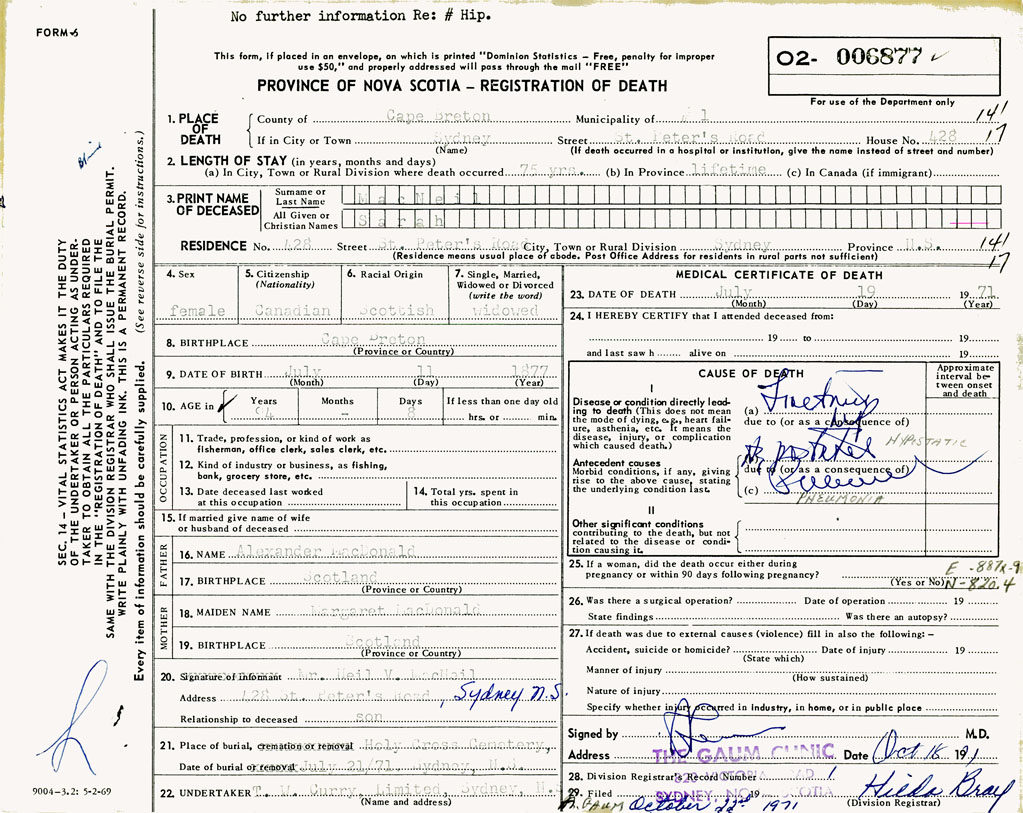 No further information Re: # Hip.
FORM 6
This form, if placed in an envelope, on which is printed "Dominion Statistics – Free, penalty for improper
use $50," and properly addressed will pass through the mail "FREE"
O2- 006877
PROVINCE OF NOVA SCOTIA – REGISTRATION OF DEATH
For use of the Department only
1. PLACE OF DEATH
County of Cape Breton Municipality of # 1 141
If in City or Town Sydney Street St. Peter's Road House No. 428 17
(Name) (If death occurred in a hospital or institution, give the name instead of street and number)
2. LENGTH OF STAY (in years, months and days)
(a) In City, Town or Rural Division where death occurred 75 yrs. (b) In Province lifetime (c) In Canada (if immigrant)
3. PRINT NAME OF DECEASED
Surname or Last Name MacNeil
All Given or Christian Names Sarah
RESIDENCE No. 428 Street St. Peter's Road City, Town or Rural Division Sydney Province N.S. 141
(Residence means usual place of abode. Post Office Address for residents in rural parts not sufficient) 17
4. Sex
female
5. Citizenship
(Nationality)
Canadian
6. Racial Origin
Scottish
7. Single, Married,
Widowed or Divorced
(write the word)
widowed
8. BIRTHPLACE Cape Breton
(Province or Country)
9. DATE OF BIRTH July 11 1877
(Month) (Day) (Year)
10. AGE in Years Months Days If less than one day old
94 – 8 hrs. or min.
OCCUPATION
11. Trade, profession, or kind of work as
fisherman, office clerk, sales clerk, etc.
12. Kind of industry or business, as fishing,
bank, grocery store, etc.
13. Date deceased last worked
at this occupation
14. Total yrs. spent in
this occupation
15. If married give name of wife
or husband of deceased
FATHER
16. NAME Alexander MacDonald
17. BIRTHPLACE Scotland
(Province or Country)
MOTHER
18. MAIDEN NAME Margaret MacDonald
19. BIRTHPLACE Scotland
(Province or Country)
20. Signature of Informant Mr. Neil V. MacNeil
Address 428 St. Peter's Road, Sydney N.S.
Relationship to deceased son
21. Place of burial, cremation or removal Holy Cross Cemetery,
Date of burial or removal July 21/71 Sydney, N.S.
22. UNDERTAKER T. W. Curry, Limited, Sydney, N.S.
(Name and address)
MEDICAL CERTIFICATE OF DEATH
23. DATE OF DEATH July 19 1971
(Month) (Day) (Year)
24. I HEREBY CERTIFY that I attended deceased from:
19 to 19
and last saw h alive on 19
CAUSE OF DEATH
Approximate
interval be-
tween onset
and death
I
Disease or condition directly lead-
ing to death (This does not mean
the mode of dying, e.g., heart fail-
ure, asthenia, etc. It means the
disease, injury, or complication
which caused death.)
(a) Fractured Hip
due to (or as a consequence of)
HYPOSTATIC
Antecedent causes
Morbid conditions, if any, giving
rise to the above cause, stating
the underlying condition last.
due to (or as a consequence of)
(c)
PNEUMONIA
II
Other significant conditions
contributing to the death, but not
related to the disease or condi-
tion causing it.
25. If a woman, did the death occur either during
pregnancy or within 90 days following pregnancy?
(Yes or No)
E -887x-9
N-820.4
26. Was there a surgical operation? Date of operation 19
State findings Was there an autopsy?
27. If death was due to external causes (violence) fill in also the following: –
Accident, suicide or homicide? Date of injury 19
(State which)
Manner of injury
(How sustained)
Nature of injury
Specify whether injury occurred in industry, in home, or in public place
Signed by M.D.
Address THE GAUM CLINIC Date Oct 16 1971
28. Division Registrar's Record Number 1
29. Filed 19
SYDNEY, NOVA SCOTIA
GAUM October 22nd 1971 Hilda Bray
(Division Registrar)
SEC. 14 – VITAL STATISTICS ACT MAKES IT THE DUTY
OF THE UNDERTAKER OR PERSON ACTING AS UNDER-
TAKER TO OBTAIN ALL THE PARTICULARS REQUIRED
IN THE "REGISTRATION OF DEATH" AND TO FILE THE
SAME WITH THE DIVISION REGISTRAR WHO SHALL ISSUE THE BURIAL PERMIT.
WRITE PLAINLY WITH UNFADING INK. THIS IS A PERMANENT RECORD.
Every item of information should be carefully supplied. (See reverse side for instructions.)
9004-3.2: 5-2-69